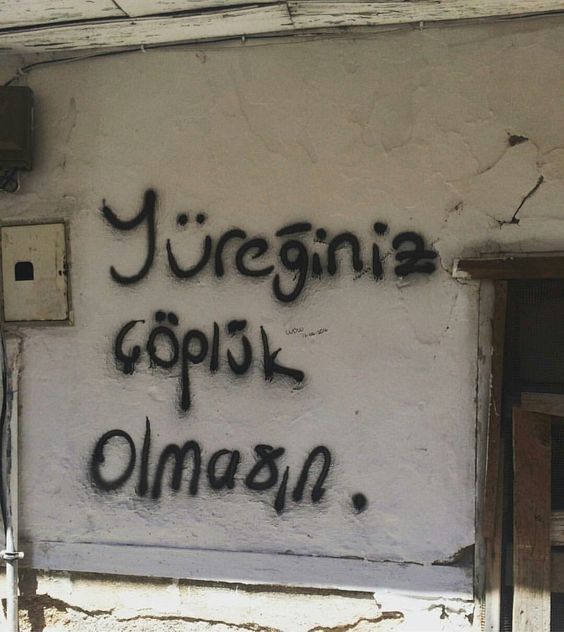 Yüreğiniz
çöplük
olmasın.
wow